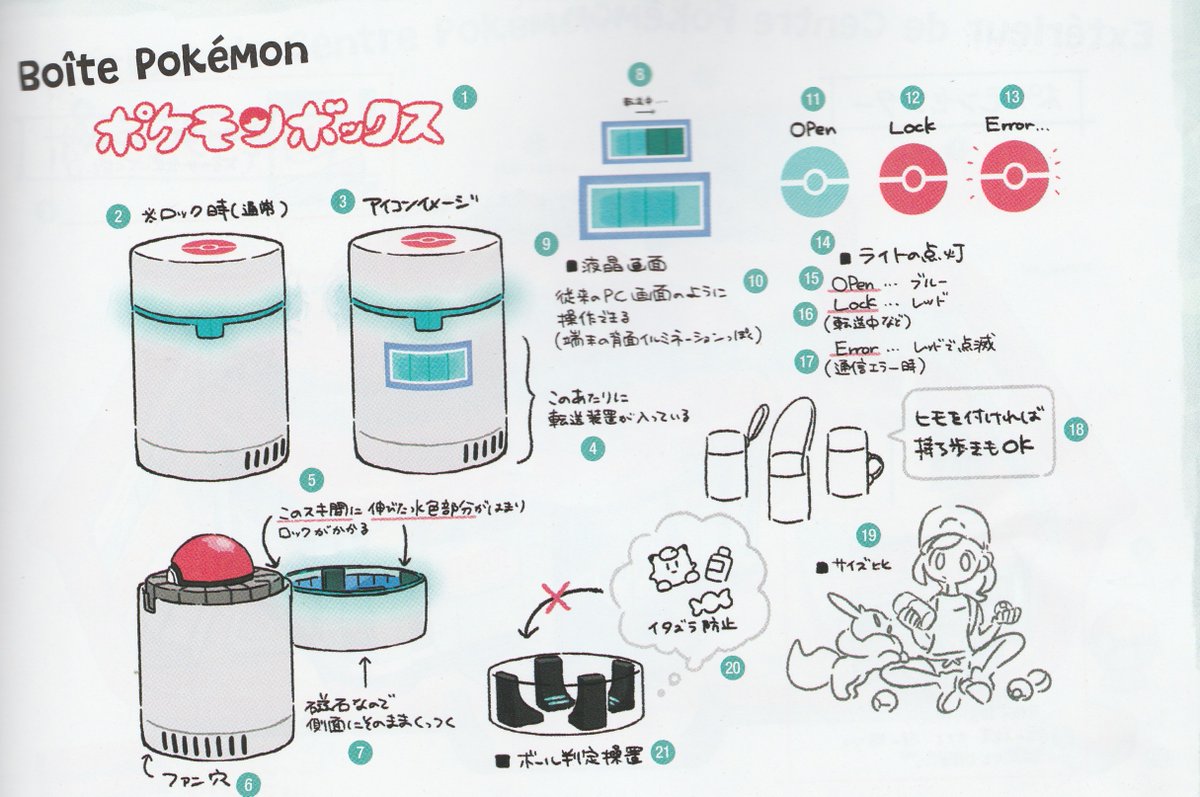 Boîte Pokémon
ポケモンボックス
1
2
※ロック時(通常)
3
アイコンイメージ
8
転送中…
9
■液晶画面
従来のPC画面のように
操作できる
(端末の背面イルミネーションっぽく)
10
11
Open
12
Lock
13
Error...
14
■ライトの点灯
15
Open … ブルー
16
Lock … レッド
(転送中など)
17
Error … レッドで点滅
(通信エラー時)
このあたりに
転送装置が入っている
4
ヒモを付ければ
持ち歩きもOK
18
5
このスキ間に伸びた水色部分がはまり
ロックがかかる
ファン穴
6
磁石なので
側面にそのままくっつく
7
イタズラ防止
20
■ボール判定装置
21
19
■サイズ比